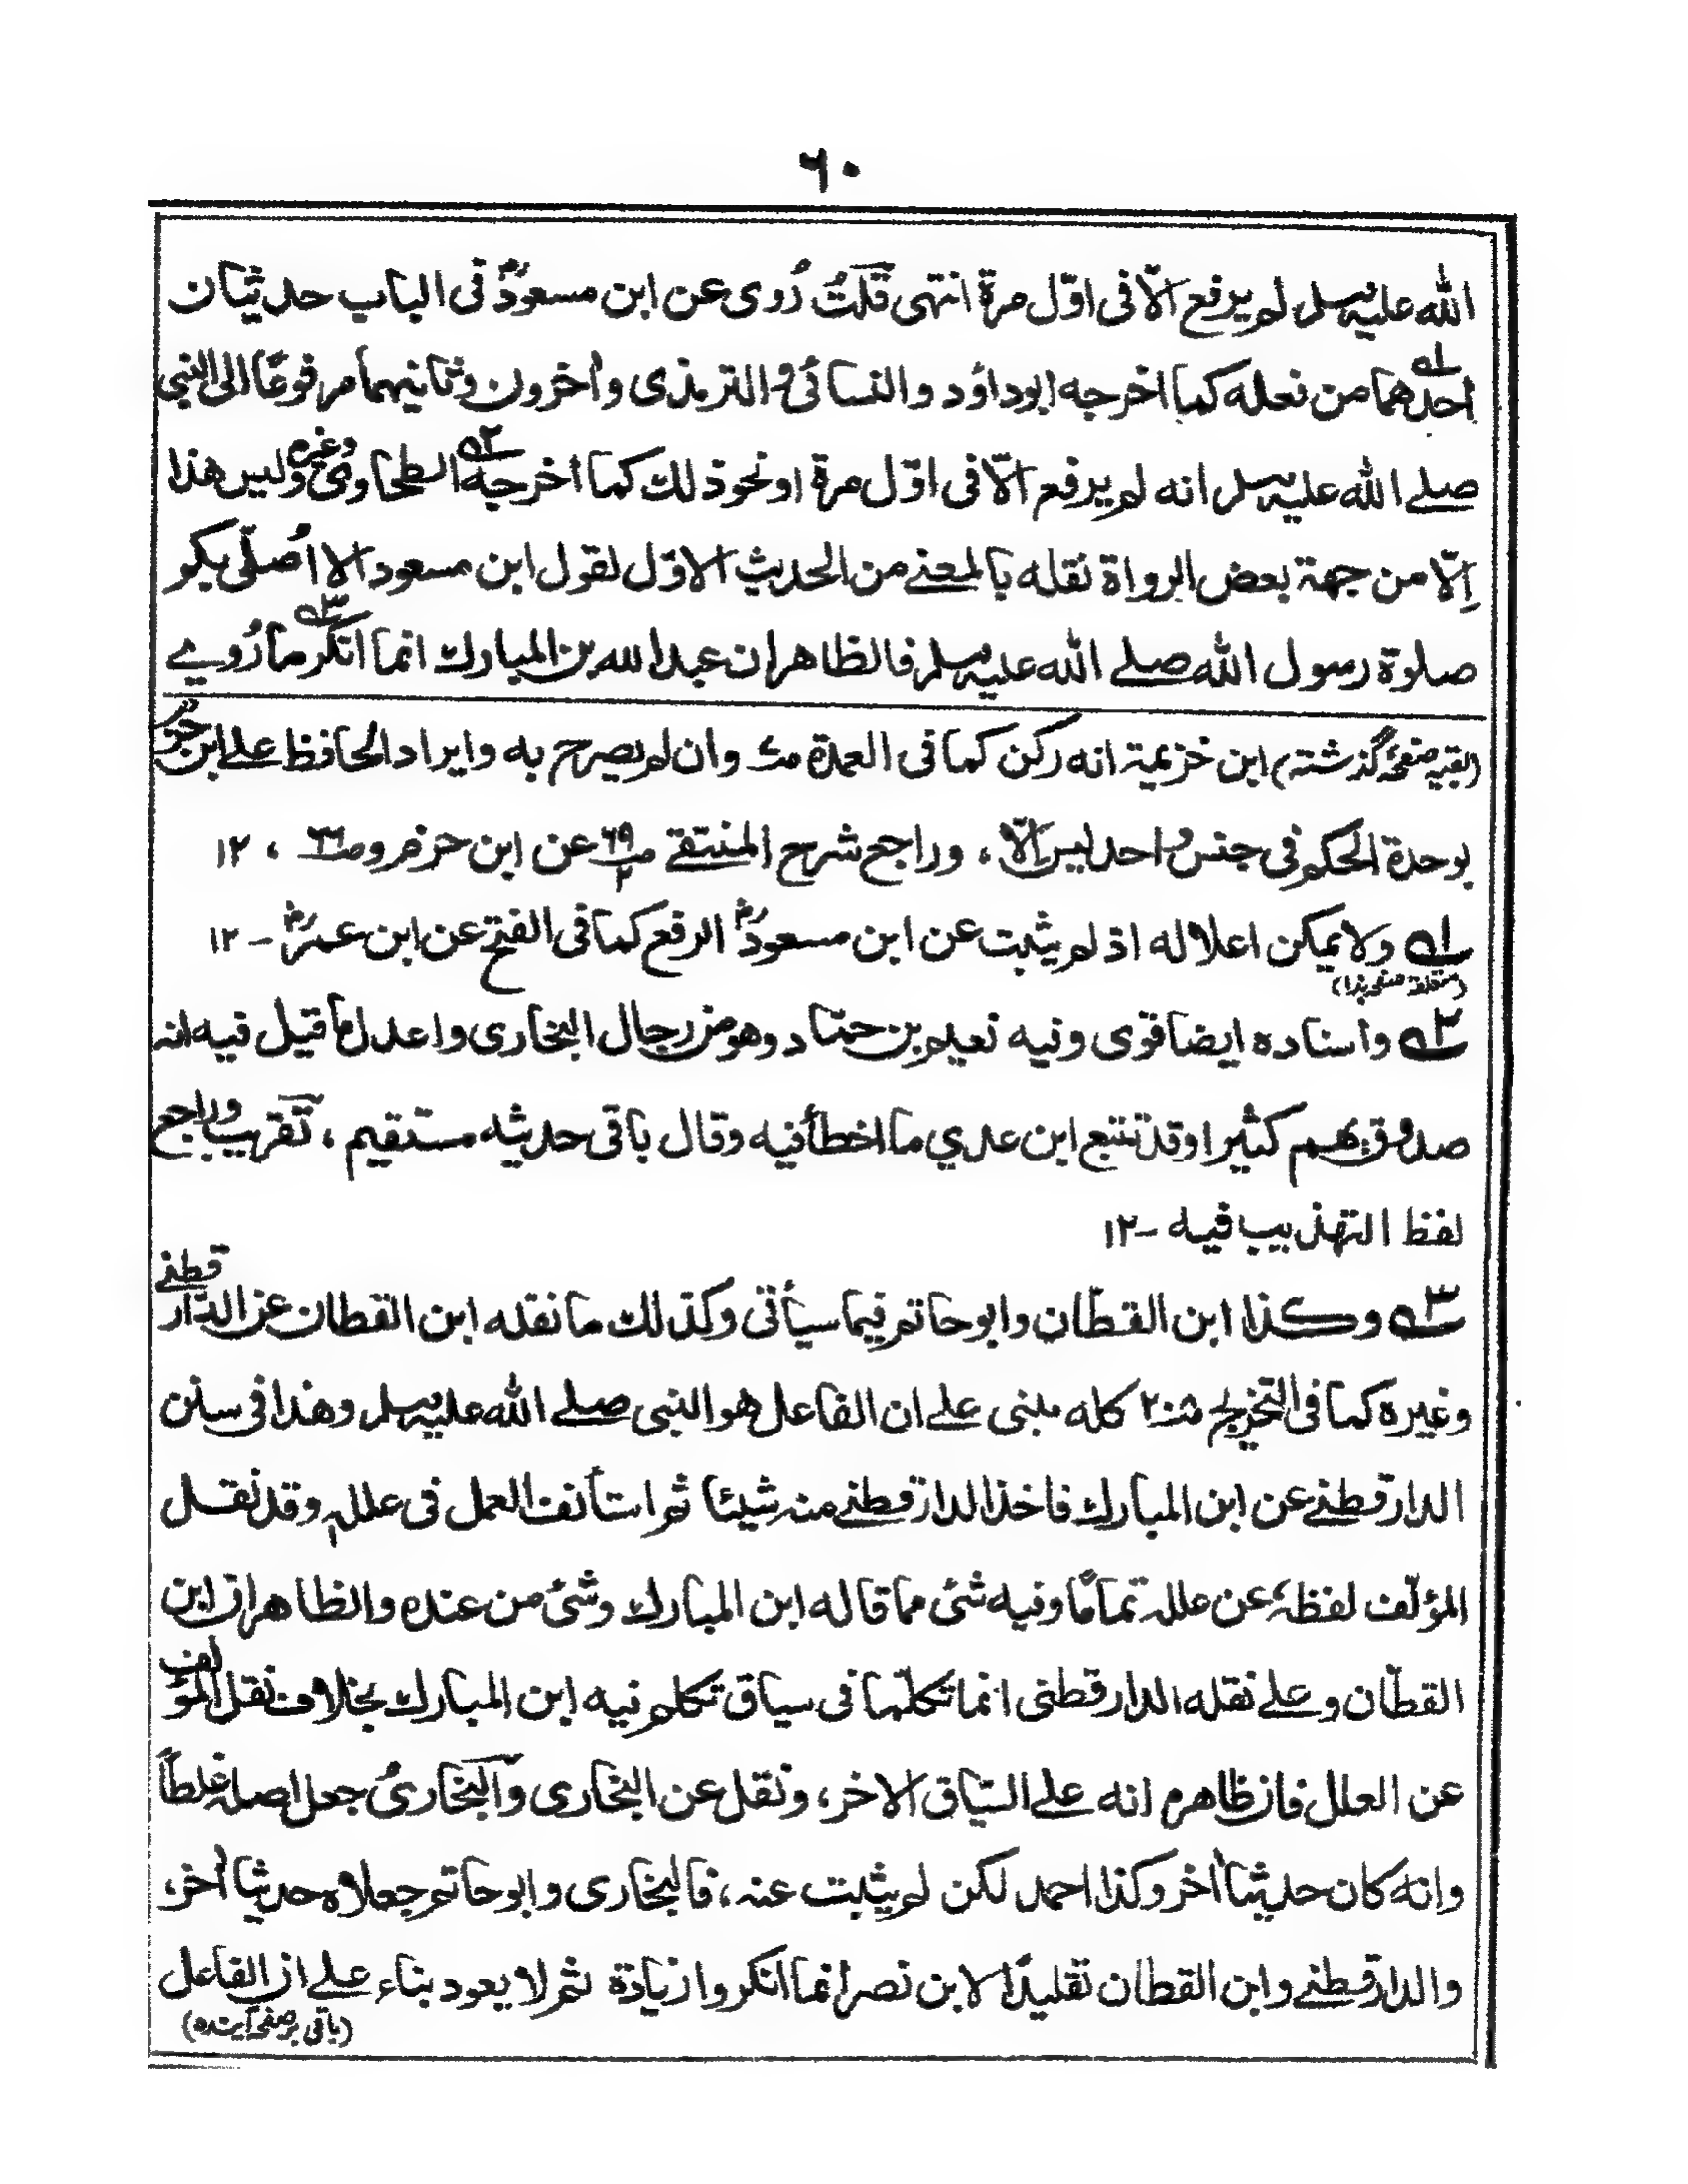 ٦٠
الله عليه وسلم لم يرفع الّا فى اوّل مرة انتهى قلتُ رُوى عن ابن مسعودؓ فى الباب حديثان
احدهما من نعله كما اخرجه ابوداؤد والنسائىّ والترمذى واٰخرون وثانيهما مرفوعًا الى النبى
صلے الله عليه وسلم انه لم يرفع الّا فى اوّل مرة اونحو ذلك كما اخرجه الطحاوىّ وغيره وليس هذا
اِلّا من جهة بعض الرواة نقله بالمعنے من الحديث الاوّل لقول ابن مسعود الا اُصلّى بكم
صلوة رسول الله صلے الله عليه وسلم فالظاهر ان عبدالله بن المبارك انما انكر ما رُوےے
(بقيه صفحۂ گذشته) ابن خزيمة انه ركن كما فى العمدة وان لم يصرح به وايراد الحافظ علے ابن حجر
بوحدة الحكم فى جنس واحد ليس الّا، وراجع شرح المنتقے ص ٦٩ ٢ عن ابن حزم وص ٦٦، ١٢
١ه ولا يمكن اعلاله اذ لم يثبت عن ابن مسعودؓ الرفع كما فى الفتح عن ابن عمرؓ - ١٢
(متعلقه صفحه هذا)
٢ه واسناده ايضا قوى وفيه نعيم بن حماد وهو من رجال البخارى واعدل ما قيل فيه انه
صدوق يهم كثيرا وقد تتبع ابن عدي ما اخطأ فيه وقال باقى حديثه مستقيم، تقريب وراجع
لفظ التهذيب فيه - ١٢
٣ه وكذا ابن القطّان وابوحاتم فيما سيأتى وكذلك ما نقله ابن القطان عن الدّارقطنے
وغيره كما فى التخريج ص ٢٠ كله مبنى علے ان الفاعل هو النبى صلے الله عليه وسلم وهذا فى سنن
الدارقطنے عن ابن المبارك فاخذ الدارقطنے منه شيئا ثم استأنف العمل فى علله وقد نقل
المؤلّف لفظهٗ عن علله تمامًا وفيه شئ مما قاله ابن المبارك وشئ من عنده والظاهر ان ابن
القطّان وعلے نقله الدارقطنى انما تكلّما فى سياق تكلم فيه ابن المبارك بخلاف نقل المؤلف
عن العلل فان ظاهره انه علے السّياق الاخر، ونقل عن البخارى والبخارىُّ جعل اصله غلطاً
وانه كان حديثا اٰخر وكذا احمد لكن لم يثبت عنه، فالبخارى وابوحاتم جعلاه حديثا اٰخر،
والدارقطنے وابن القطان تقليدًا لابن نصر انما انكروا زيادة ثم لا يعود بناء علے ان الفاعل
(باقى برصفحه آينده)